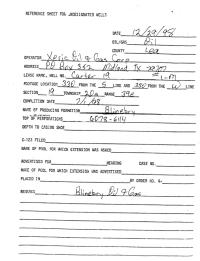 REFERENCE SHEET FOR UNDESIGNATED WELLS
DATE 12/29/98
OIL/GAS Oil
COUNTY Lea
OPERATOR Xeric Oil & Gas Corp
ADDRESS PO Box 352 Midland TX
LEASE NAME, WELL NO. Carter 19 L-M
FOOTAGE LOCATION 330 FROM THE S LINE AND 330 FROM THE W LINE
SECTION 19 TOWNSHIP 20s RANGE 39e
COMPLETION DATE
NAME OF PRODUCING FORMATION Blinebry
TOP OF PERFORATIONS 6078-6114
DEPTH TO CASING SHOE
C-123 FILED
NAME OF POOL FOR WHICH EXTENSION WAS ASKED
ADVERTISED FOR HEARING CASE NO.
NAME OF POOL FOR WHICH EXTENSION WAS ADVERTISED
PLACED IN BY ORDER NO. R-
Blinebry Oil & Gas